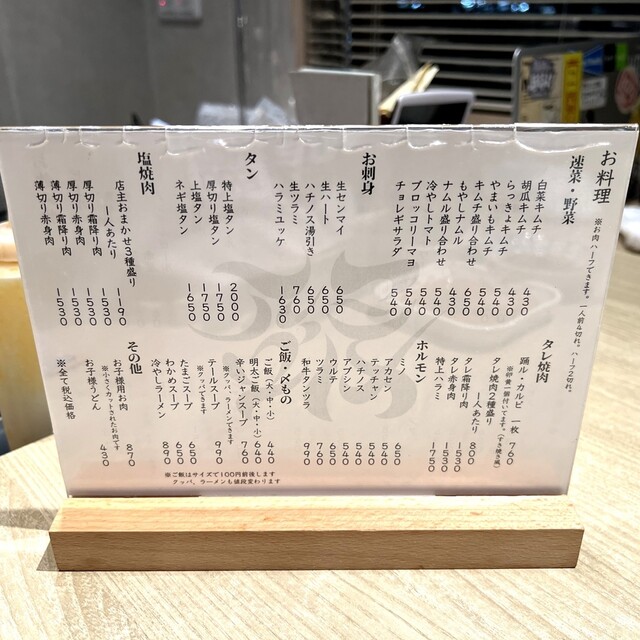 お料理
※お肉ハーフできます。一人前4切れ。ハーフ2切れ。
速菜・野菜
白菜キムチ 430
胡瓜キムチ 430
らっきょキムチ 540
やまいもキムチ 540
キムチ盛り合わせ 650
もやしナムル 430
ナムル盛り合わせ 540
冷やしトマト 540
ブロッコリーマヨ 540
チョレギサラダ 540
お刺身
生センマイ 650
生ハート 650
ハチノス湯引き 650
生ツラミ 760
ハラミユッケ 1630
タン
特上塩タン 2000
厚切り塩タン 1750
上塩タン 1750
ネギ塩タン 1650
塩焼肉
店主おまかせ3種盛り
1人あたり 1190
厚切り霜降り肉 1530
厚切り赤身肉 1530
薄切り霜降り肉 1530
薄切り赤身肉 1530
タレ焼肉
踊ル・カルビ 一枚 760
※卵黄一個付いてます。(すき焼き風)
タレ焼肉2種盛り
1人あたり 800
タレ霜降り肉 1530
タレ赤身肉 1530
特上ハラミ 1750
ホルモン
ミノ 650
アカセン 540
テッチャン 540
ハチノス 540
アブシン 540
ウルテ 650
ツラミ 760
和牛タンツラ 990
ご飯・〆もの
ご飯(大・中・小) 440
明太ご飯(大・中・小) 640
辛いジャンスープ 760
※クッパ、ラーメンできます
テールスープ 990
※クッパできます
たまごスープ 650
わかめスープ 650
冷やしラーメン 890
※ご飯はサイズで100円前後します
クッパ、ラーメンも値段変わります
その他
お子様用お肉 870
※小さくカットされたお肉です
お子様うどん 430
※全て税込価格